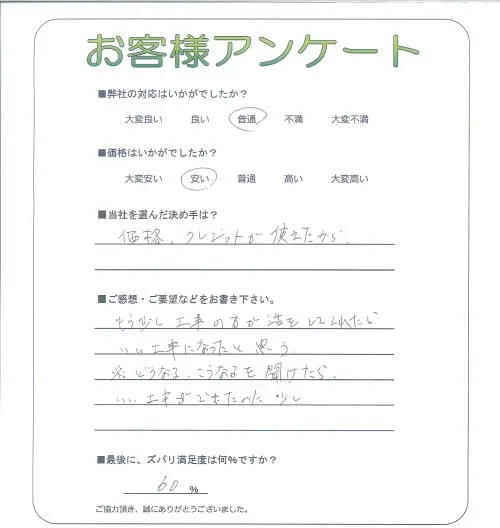 お客様アンケート
■弊社の対応はいかがでしたか？
大変良い 良い 普通 不満 大変不満
■価格はいかがでしたか？
大変安い 安い 普通 高い 大変高い
■当社を選んだ決め手は？
価格、クレジットが使えたから、
■ご感想・ご要望などをお書き下さい。
もう少し工事の方が話をしてくれたら
いい工事になったと思う。
どうなる、こうなるを聞けたら、
いい工事ができたのに少し
■最後に、ズバリ満足度は何％ですか？
60 %
ご協力頂き、誠にありがとうございました。